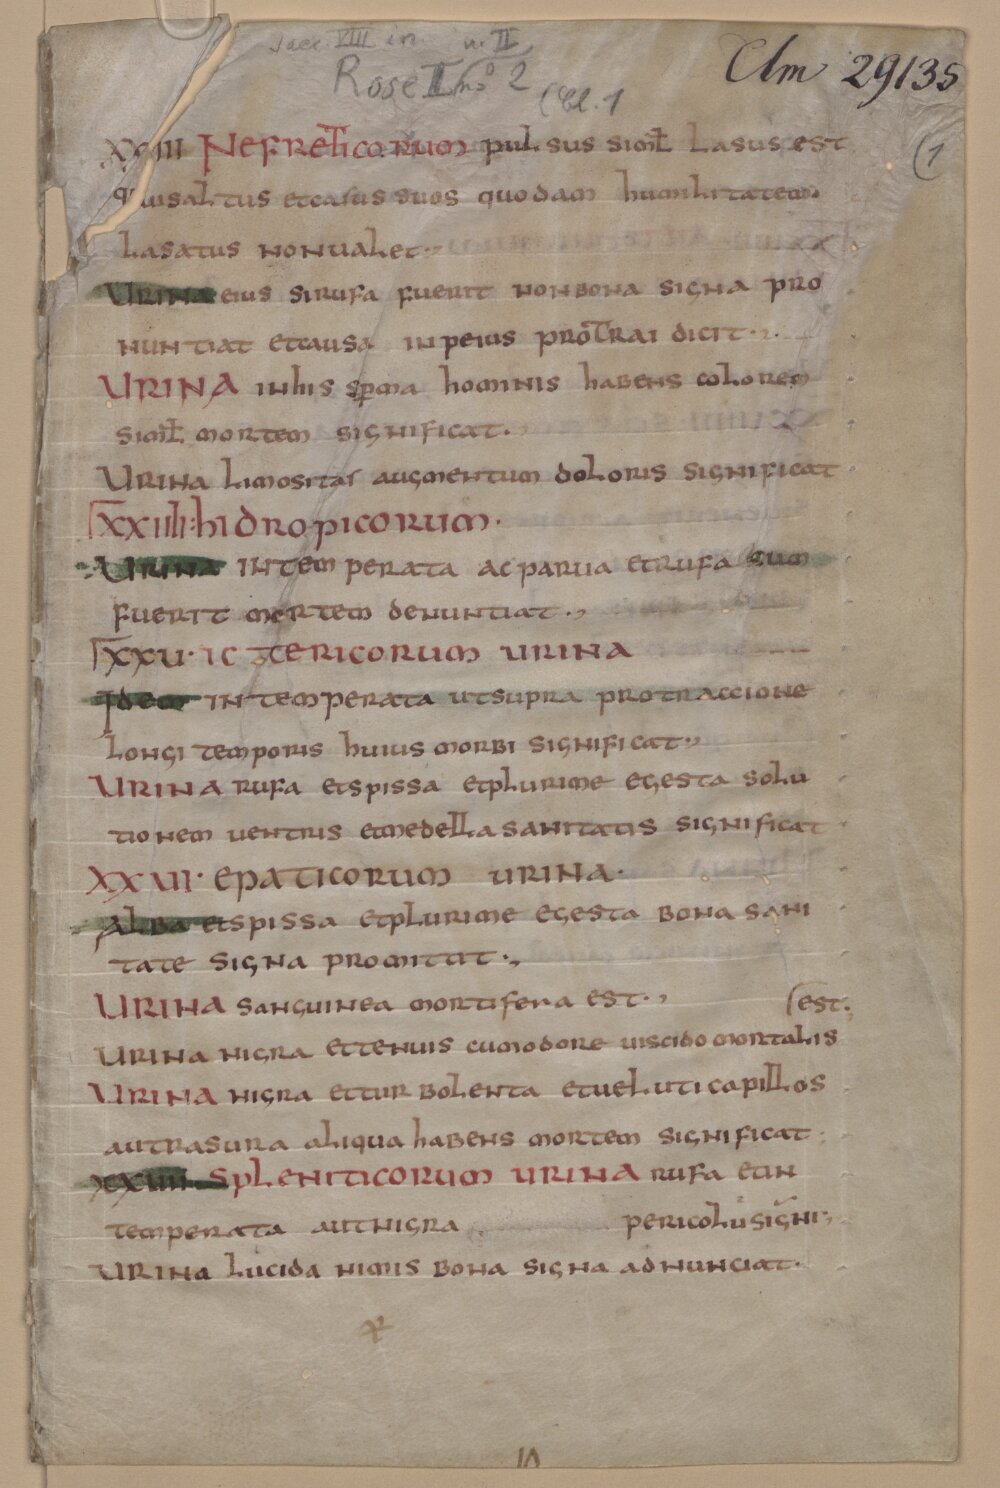 saec. VIII in. n. II
Rose II no 2
(Bl. 1
Clm 29135
(1
XXIII NEFRETICORUM pulsus simił lasus est
saltus et casus suos quodam humilitatem
lasatus non ualet
URINA eius si rufa fuerit non bona signa pro
nuntiat et causa in peius protrai dicit
URINA in his sperma hominis habens colorem
simił mortem significat
URINA limositas augmentum doloris significat
XXIIII hidropicorum
URINA intemperata ac parua et rufa cum
fuerit mortem denuntiat
XXU ictericorum urina
Idem intemperata ut supra protraccione
longi temporis huius morbi significat
URINA rufa et spissa et plurime egesta solu
tionem uentris et medella sanitatis significat
XXUI epaticorum urina
Alba et spissa et plurime egesta bona sani
tate signa promittit
URINA sanguinea mortifera est
(est.
URINA nigra et tenuis cum odore uiscido mortalis
URINA nigra et turbolenta et uel uti capillos
aut rasura aliqua habens mortem significat
XXUII spleniticorum urina rufa et in
temperata aut nigra pericolū signi
URINA lucida nimis bona signa adnunciat